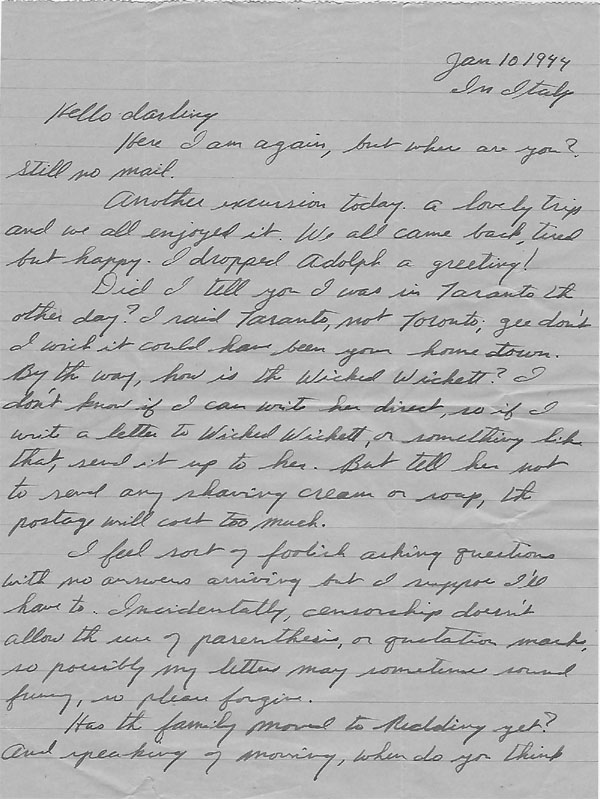 Jan 10 1944
In Italy
Hello darling
Here I am again, but where are you?
Still no mail.
Another excursion today. A lovely trip
and we all enjoyed it. We all came back, tired
but happy. I dropped Adolph a greeting!
Did I tell you I was in Taranto th
other day? I said Taranto, not Toronto; gee don't
I wish it could have been your home town.
By th way, how is th Wicked Wickett? I
don't know if I can write her direct, so if I
write a letter to Wicked Wickett, or something like
that, send it up to her. But tell her not
to send any shaving cream or soap, th
postage will cost too much.
I feel sort of foolish asking questions
with no answers arriving but I suppose I'll
have to. Incidentally, censorship doesn't
allow th use of parenthesis, or quotation marks,
so possibly my letters may sometime sound
funny, so please forgive.
Has th family moved to Redding yet?
And speaking of moving, when do you think